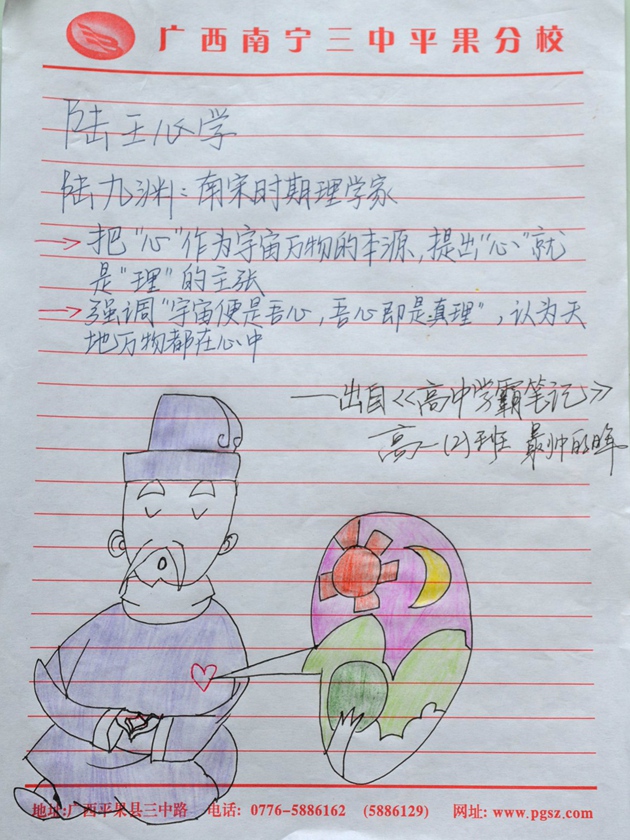 广西南宁三中平果分校
陆王心学
陆九渊：南宋时期理学家
→ 把“心”作为宇宙万物的本源，提出“心”就
是“理”的主张
→ 强调“宇宙便是吾心，吾心即是真理”，认为天
地万物都在心中
——出自《高中学霸笔记》
高二（2）班 最帅的晖
地址:广西平果县三中路 电话: 0776-5886162 (5886129) 网址: www.pgsz.com